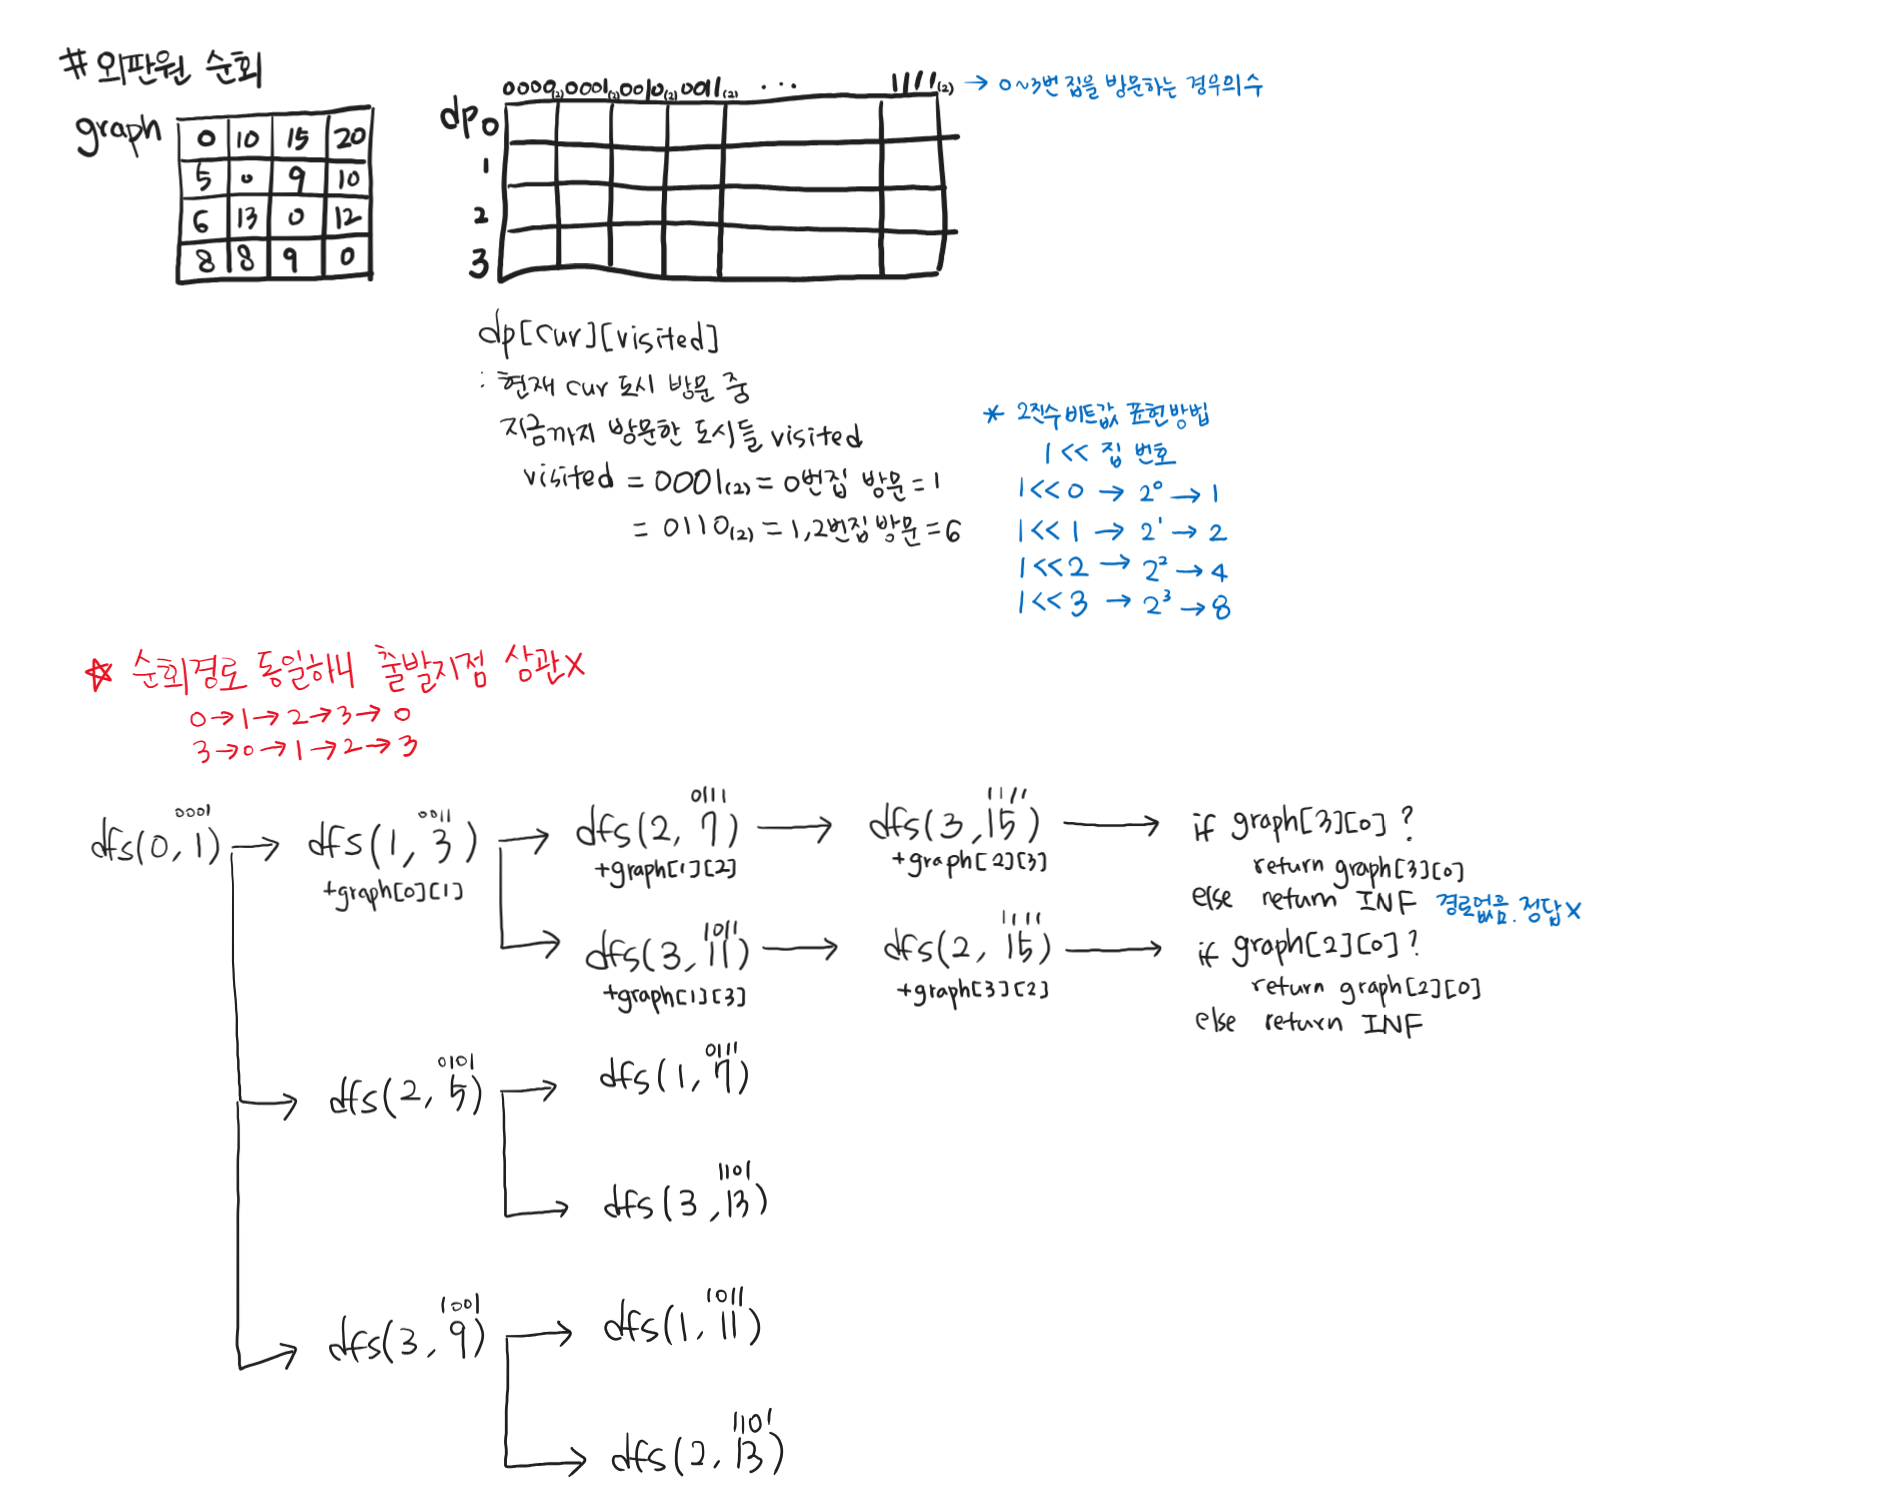 # 외판원 순회
graph
0 10 15 20
5 0 9 10
6 13 0 12
8 8 9 0
0000(2) 0001(2) 0010(2) 0011(2) ... 1111(2) → 0~3번 집을 방문하는 경우의수
dp 0
1
2
3
dp[cur][visited]
: 현재 cur 도시 방문 중
지금까지 방문한 도시들 visited
visited = 0001(2) = 0번집 방문 = 1
= 0110(2) = 1,2번집 방문 = 6
* 2진수 비트값 표현방법
1 << 집 번호
1<<0 → 2⁰ → 1
1<<1 → 2¹ → 2
1<<2 → 2² → 4
1<<3 → 2³ → 8
☆ 순회경로 동일하니 출발지점 상관X
0→1→2→3→0
3→0→1→2→3
0001
dfs(0, 1) →
0011
dfs(1, 3) →
+graph[0][1]
0111
dfs(2, 7) →
+graph[1][2]
1111
dfs(3, 15) →
+graph[2][3]
if graph[3][0] ?
return graph[3][0]
else return INF 경로없음. 정답X
1011
dfs(3, 11) →
+graph[1][3]
1111
dfs(2, 15) →
+graph[3][2]
if graph[2][0] ?
return graph[2][0]
else return INF
0101
dfs(2, 5) →
0111
dfs(1, 7)
1101
dfs(3, 13)
1001
dfs(3, 9) →
1011
dfs(1, 11)
1101
dfs(2, 13)